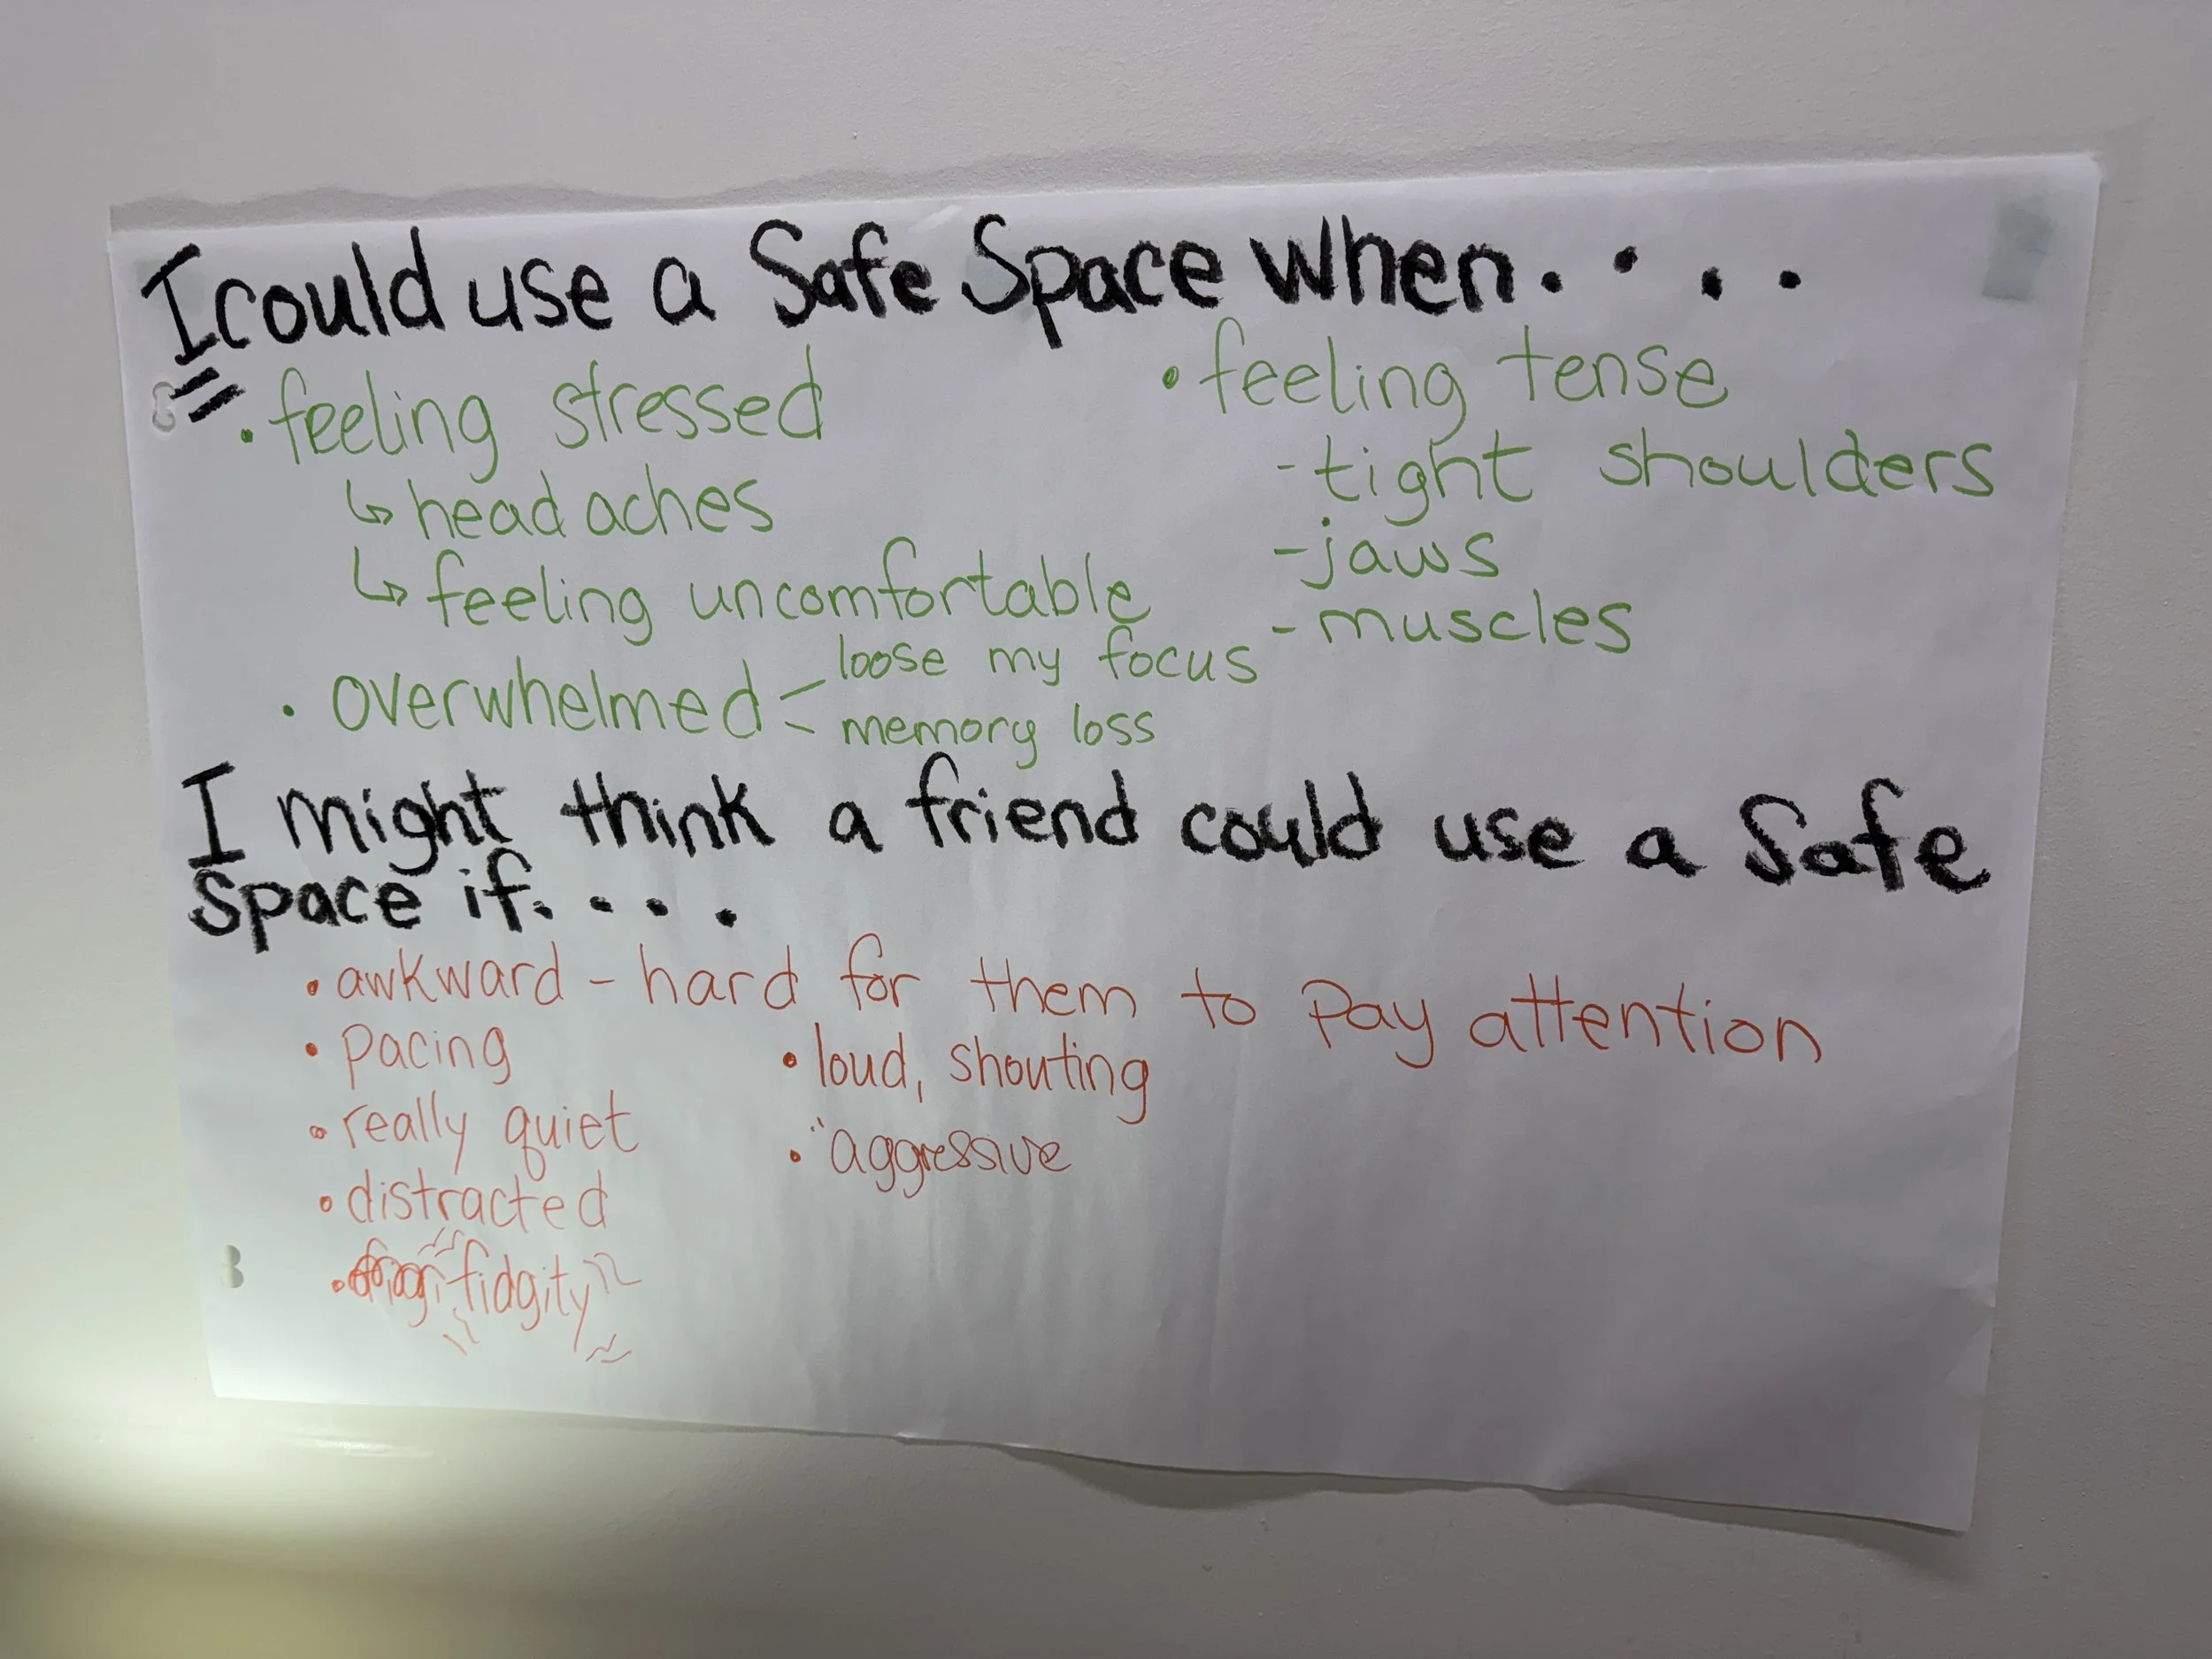 I could use a Safe Space when....
• feeling stressed
↳ head aches
↳ feeling uncomfortable
• overwhelmed - loose my focus
- memory loss
• feeling tense
- tight shoulders
- jaws
- muscles
I might think a friend could use a Safe
Space if....
• awkward - hard for them to pay attention
• pacing
• really quiet
• distracted
• fidgity
• loud, shouting
• aggressive